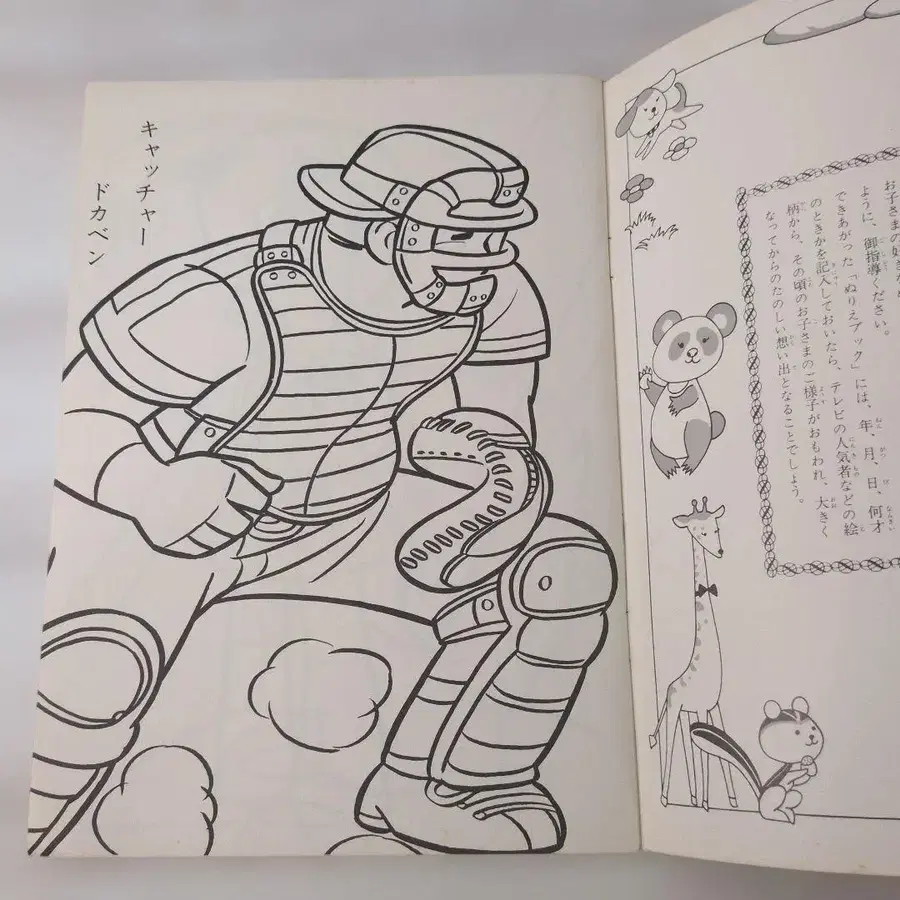 キャッチャー
ドカベン
お子さまの好きな
ように、御指導ください。
できあがった「ぬりえブック」には、年、月、日、何才
のときかを記入しておいたら、テレビの人気者などの絵
柄から、その頃のお子さまのご様子がおもわれ、大きく
なってからのたのしい想い出となることでしょう。